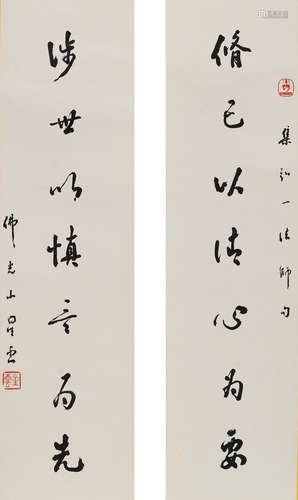 脩己以清心為要
集弘一法師句
涉世以慎言為先
佛光山星雲